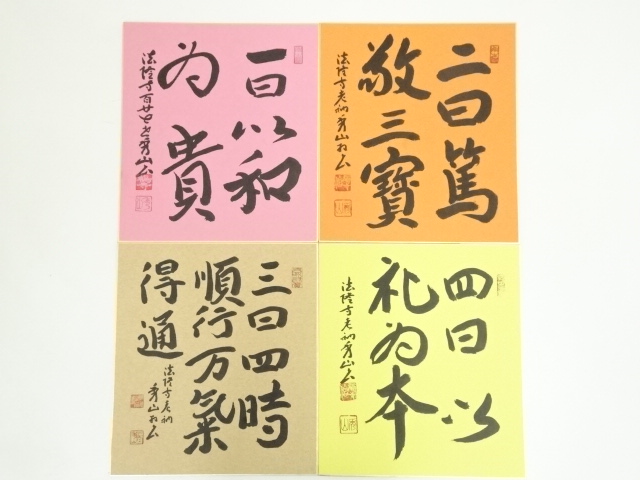 一曰以和
为貴
法隆寺百廿七世秀山書
二曰篤
敬三寳
法隆寺老衲秀山書
三曰四時
順行万氣
得通
法隆寺老衲
秀山書
四曰以
礼为本
法隆寺老衲秀山書